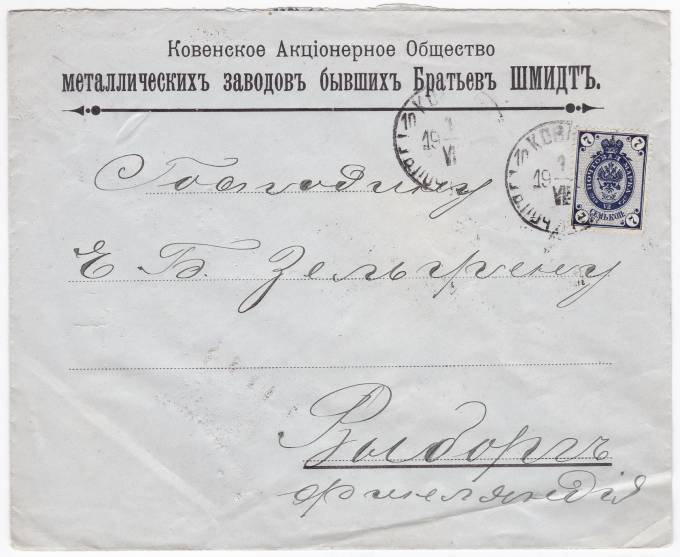 Ковенское Акціонерное Общество
металлическихъ заводовъ бывшихъ Братьевъ ШМИДТЪ.
19
VI
19
7 7
ПОЧТОВАЯ МАРКА
СЕМЬ КОП.
7 7
Господину
Е Б. Зельгрену
Выборгъ
Финляндія